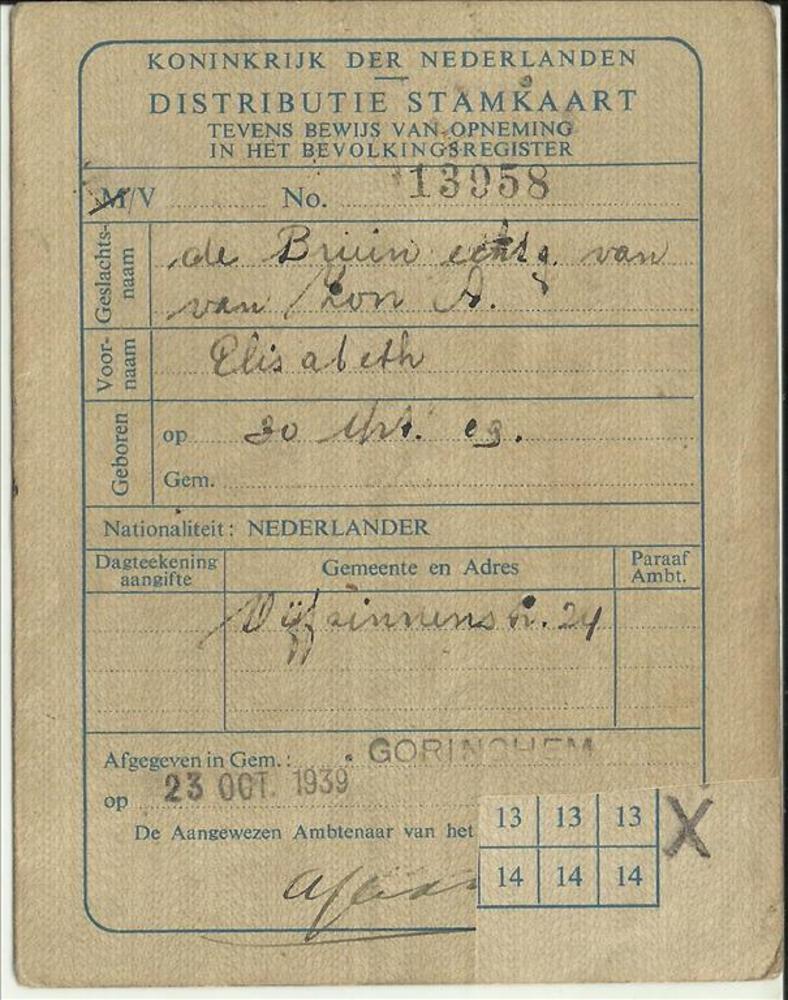 KONINKRIJK DER NEDERLANDEN
DISTRIBUTIE STAMKAART
TEVENS BEWIJS VAN OPNEMING
IN HET BEVOLKINGSREGISTER
M/V No. 13958
Geslachtsnaam de Bruin echtg. van
van Zon A.
Voornaam Elisabeth
Geboren op 30 03.
Gem.
Nationaliteit: NEDERLANDER
Dagteekening aangifte Gemeente en Adres Paraaf Ambt.
24
Afgegeven in Gem.: GORINCHEM
op 23 OCT. 1939
De Aangewezen Ambtenaar van het
13 13 13 X
14 14 14